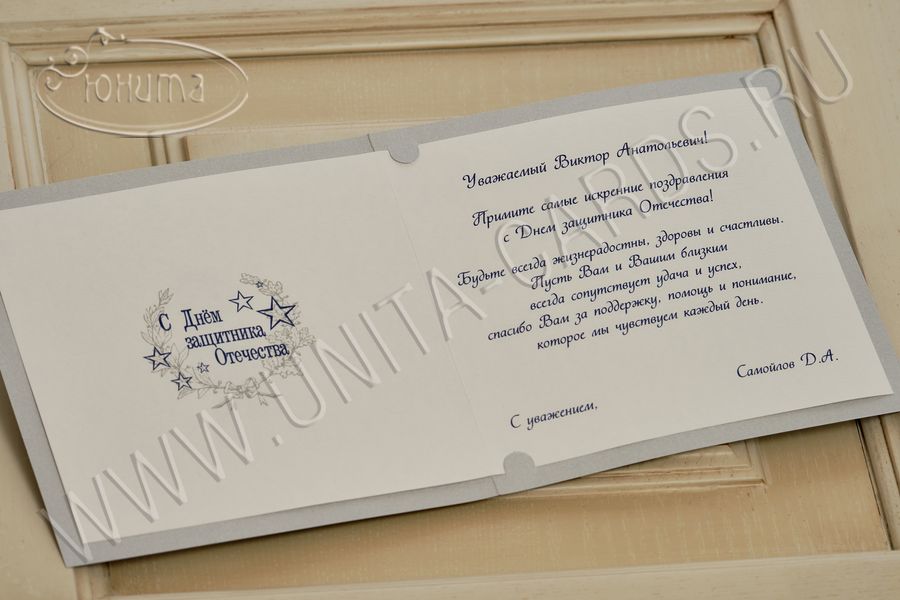 Юнита
WWW.UNITA-CARDS.RU
С Днём
защитника
Отечества
Уважаемый Виктор Анатольевич!
Примите самые искренние поздравления
с Днем защитника Отечества!
Будьте всегда жизнерадостны, здоровы и счастливы.
Пусть Вам и Вашим близким
всегда сопутствует удача и успех,
спасибо Вам за поддержку, помощь и понимание,
которое мы чувствуем каждый день.
Самойлов Д.А.
С уважением,